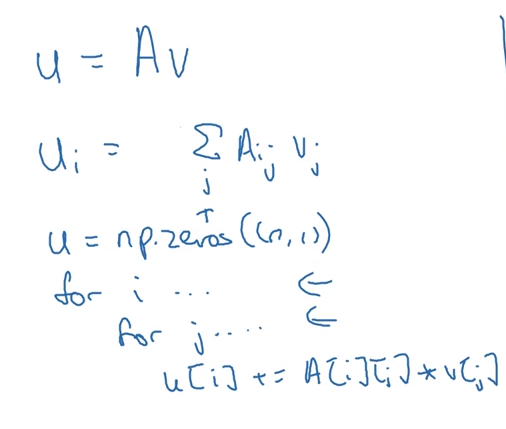 u = Av
uᵢ = Σⱼ Aᵢⱼ vⱼ
u = np.zeros((n,1))
for i ... ←
for j.... ←
u[i] += A[i][j] * v[j]